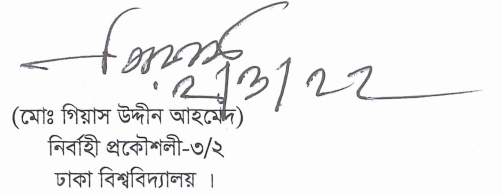 ২/3/২২
(মোঃ গিয়াস উদ্দীন আহমেদ)
নির্বাহী প্রকৌশলী-৩/২
ঢাকা বিশ্ববিদ্যালয় ।